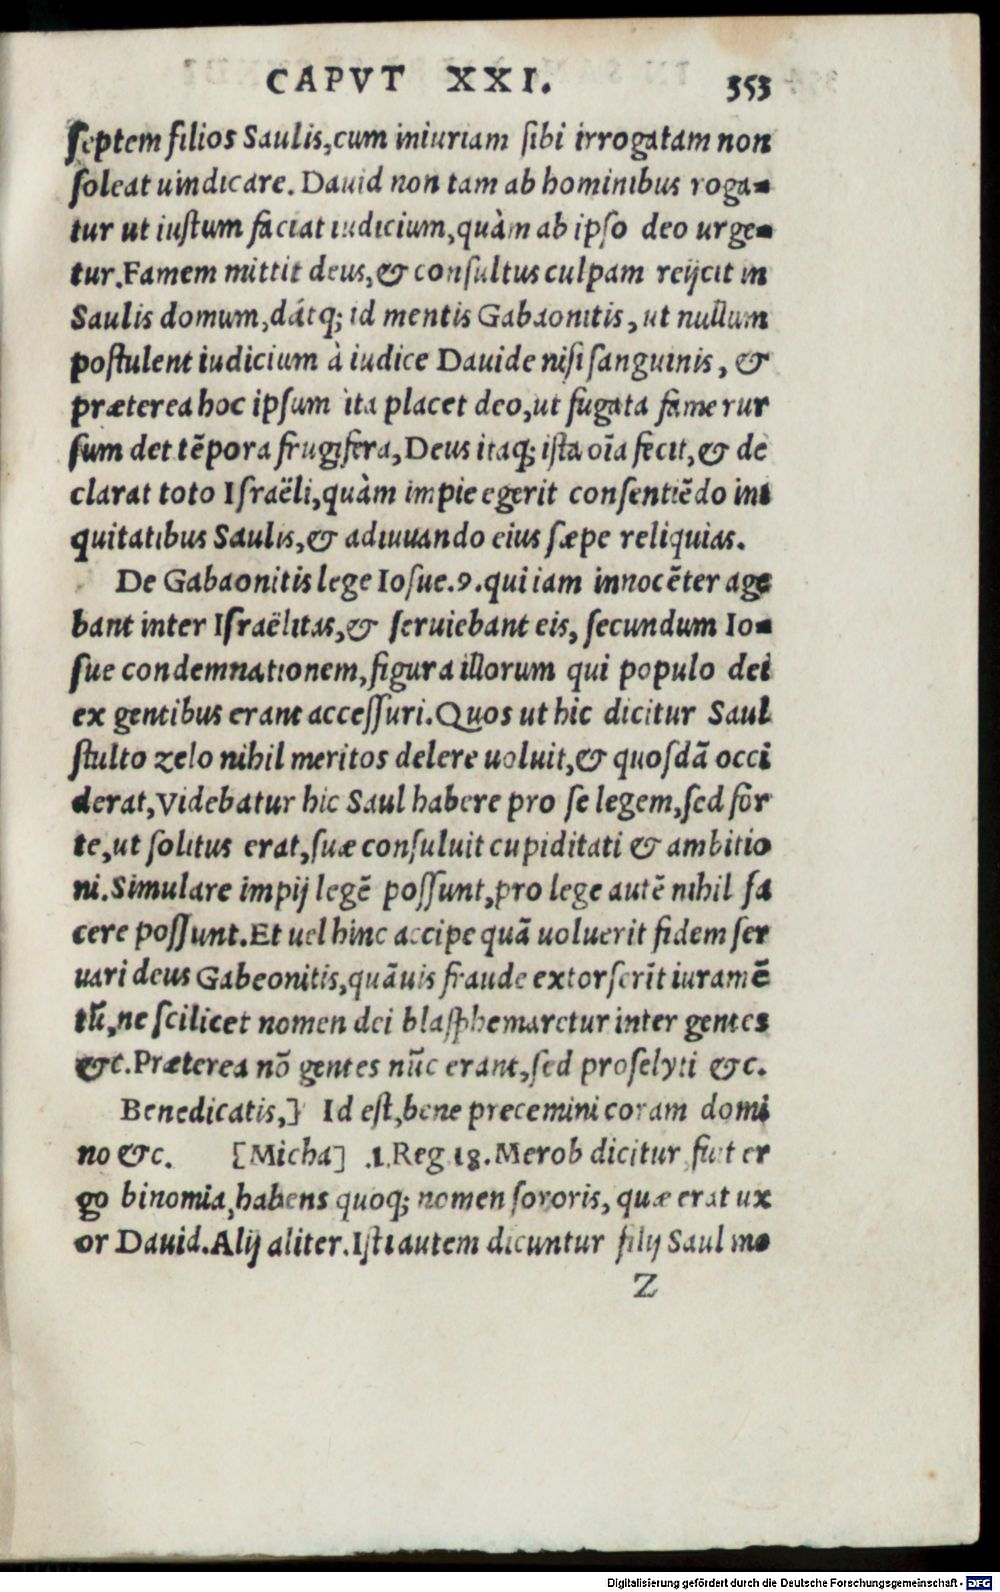 CAPVT XXI. 353
septem filios Saulis,cum iniuriam sibi irrogatam non
soleat uindicare. Dauid non tam ab hominibus roga-
tur ut iustum faciat iudicium,quàm ab ipso deo urge-
tur.Famem mittit deus,& consultus culpam reijcit in
Saulis domum,dátq; id mentis Gabaonitis, ut nullum
postulent iudicium à iudice Dauide nisi sanguinis, &
præterea hoc ipsum ita placet deo,ut fugata fame rur
sum det tēpora frugifera,Deus itaq; ista oīa fecit,& de
clarat toto Israëli,quàm impie egerit consentiēdo ini
quitatibus Saulis,& adiuuando eius sæpe reliquias.
De Gabaonitis lege Iosue.9.qui iam innocēter age
bant inter Israëlitas,& seruiebant eis, secundum Io-
sue condemnationem,figura illorum qui populo dei
ex gentibus erant accessuri.Quos ut hic dicitur Saul
stulto zelo nihil meritos delere uoluit,& quosdā occi
derat,Videbatur hic Saul habere pro se legem,sed for
te,ut solitus erat,suæ consuluit cupiditati & ambitio
ni.Simulare impij legē possunt,pro lege autē nihil fa
cere possunt.Et uel hinc accipe quā uoluerit fidem ser
uari deus Gabeonitis,quāuis fraude extorserīt iuramē
tū,ne scilicet nomen dei blasphemaretur inter gentes
&c.Præterea nō gentes nūc erant,sed proselyti &c.
Benedicatis,] Id est,bene precemini coram domi
no &c. [Micha] .1.Reg 18.Merob dicitur fuit er
go binomia,habens quoq; nomen sororis, quæ erat ux
or Dauid.Alij aliter.Isti autem dicuntur filij Saul mo
Z
Digitalisierung gefördert durch die Deutsche Forschungsgemeinschaft - DFG